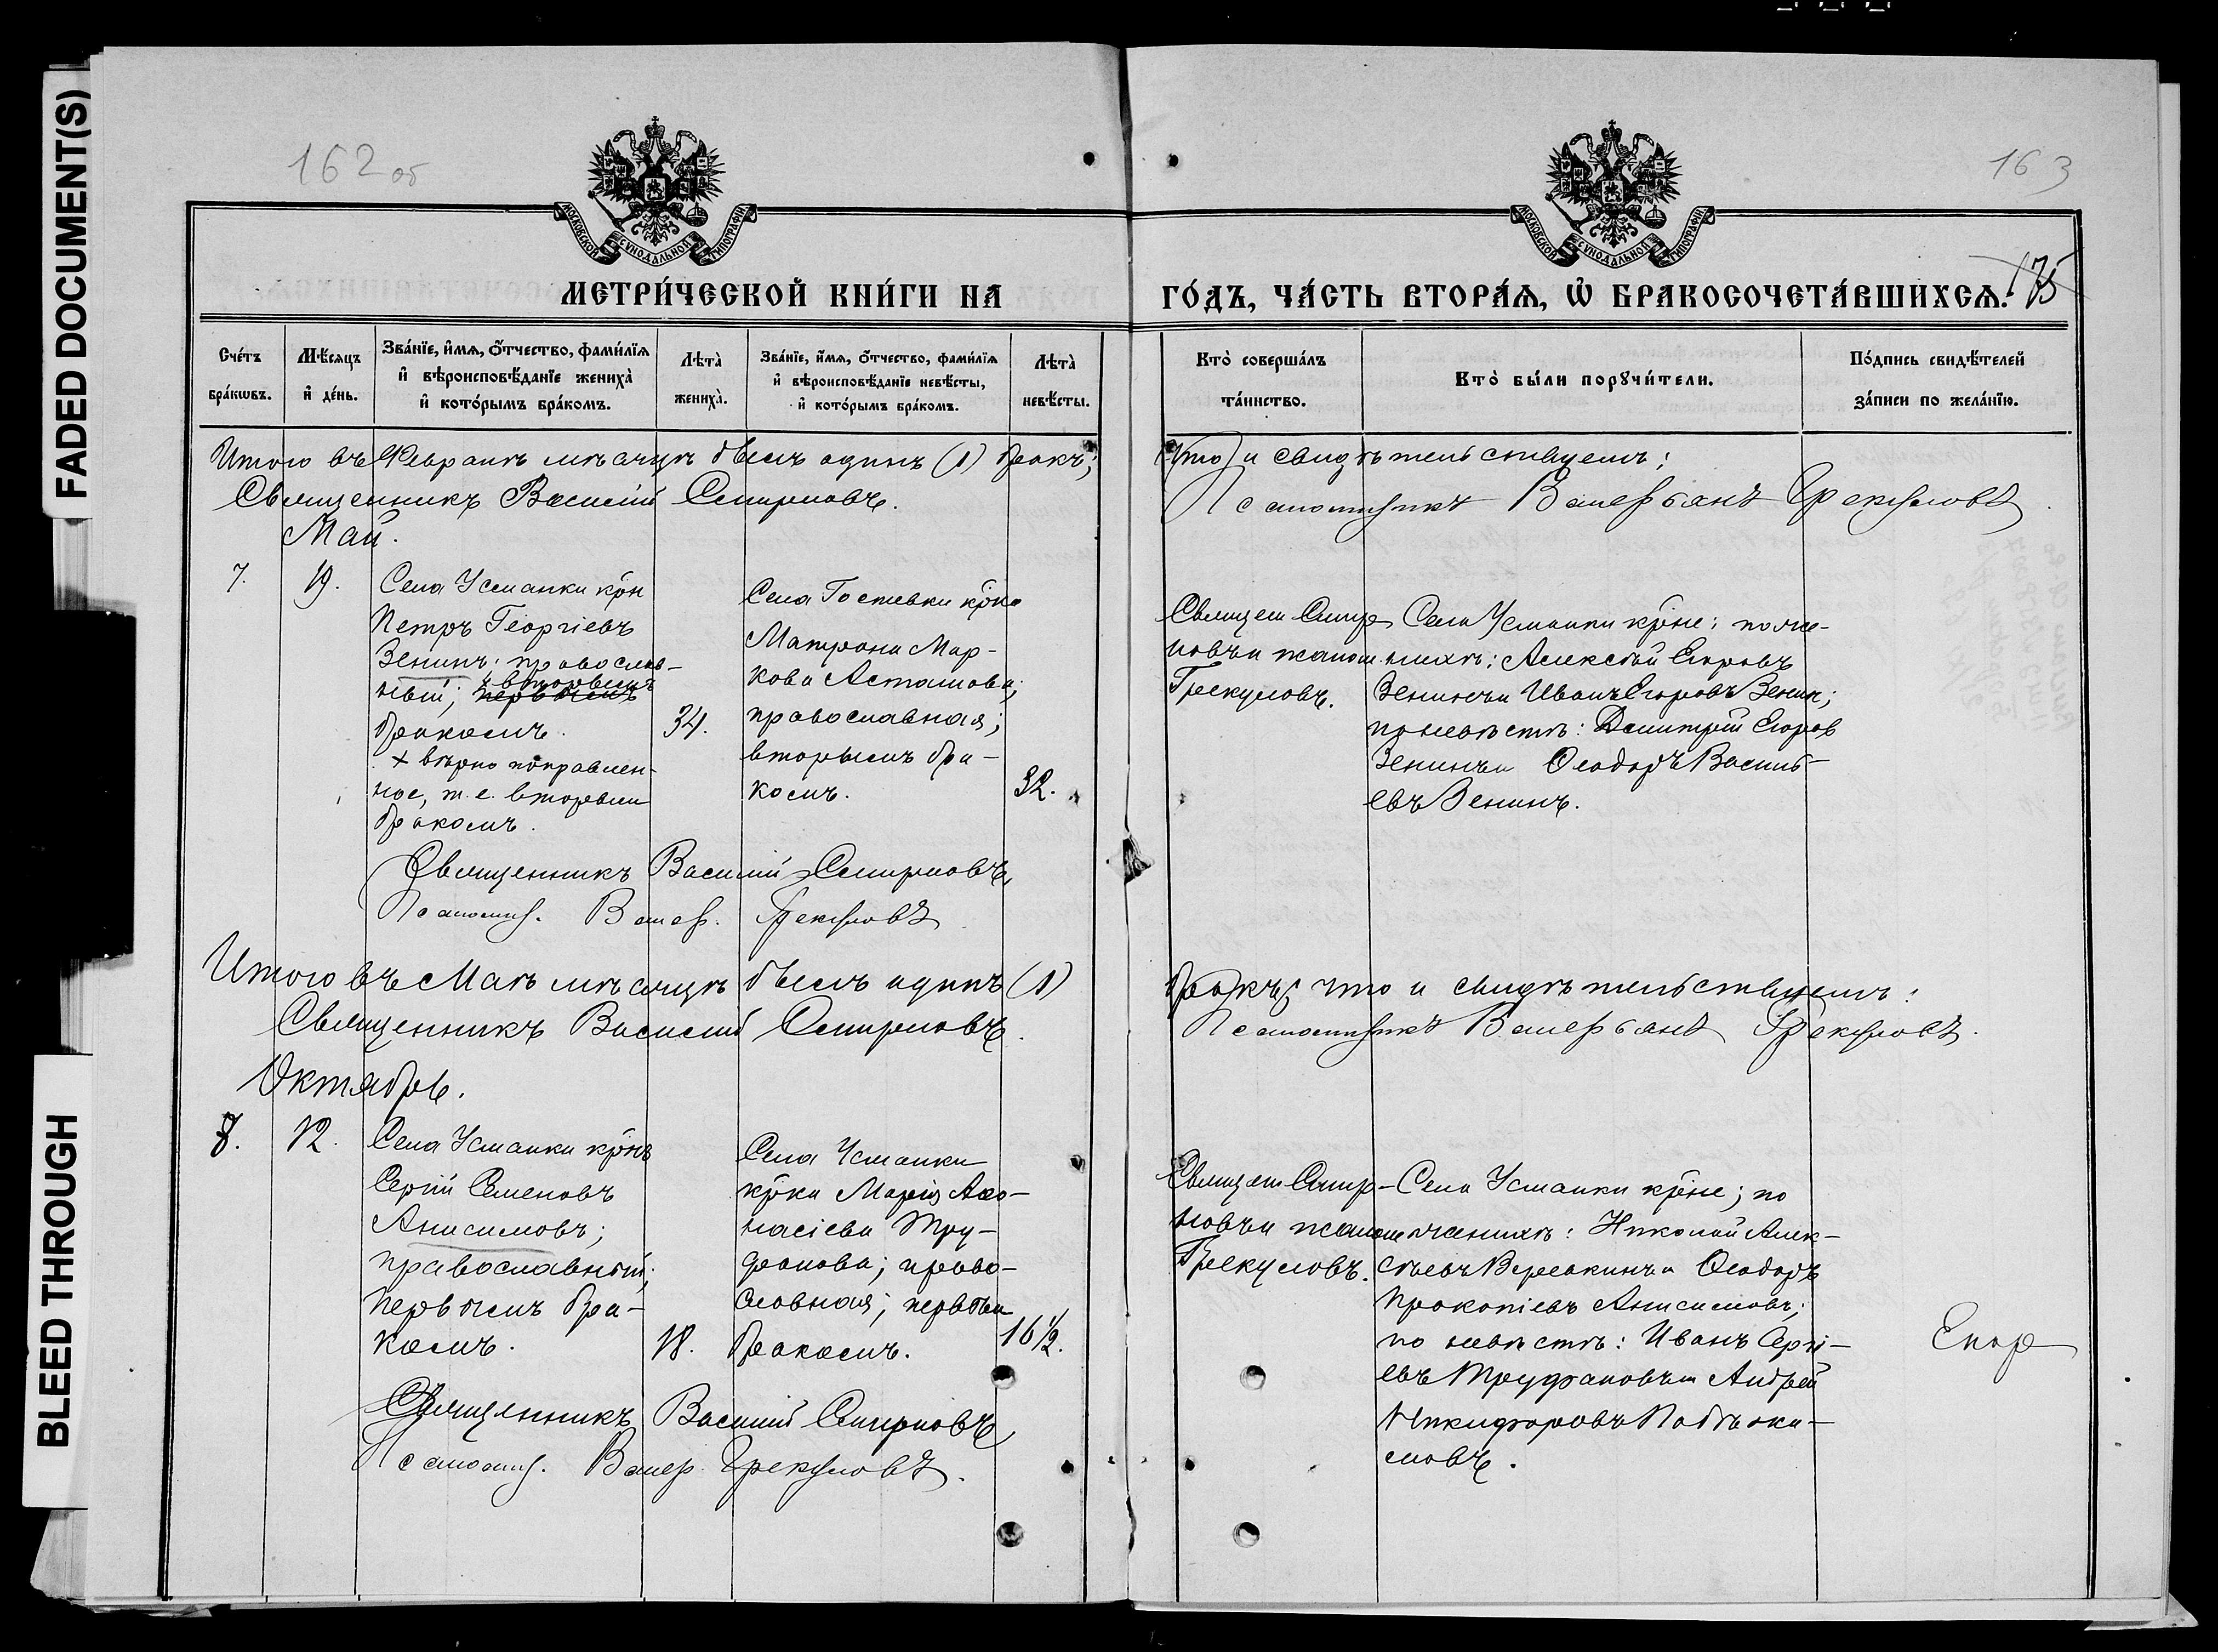 FADED DOCUMENT(S)
BLEED THROUGH
162 об
163
МОСКОВСКОЙ СУНОДАЛЬНОЙ ТИПОГРАФІИ
МОСКОВСКОЙ СУНОДАЛЬНОЙ ТИПОГРАФІИ
МЕТРИ́ЧЕСКОЙ КНИ́ГИ НА
ГО́ДЪ, ЧА́СТЬ ВТОРА́Ѧ, Ѽ БРАКОСОЧЕТА́ВШИХСѦ.
175
Сче́тъ бра́кωвъ.
Мѣ́сяцъ и҆ де́нь.
Зва́нїе, и҆́мѧ, ѻ҆́тчество, фами́лїѧ
и҆ вѣроисповѣ́данїе жениха̀
и҆ кото́рымъ бра́комъ.
Лѣта̀ жениха̀.
Зва́нїе, и҆́мѧ, ѻ҆́тчество, фами́лїѧ
и҆ вѣроисповѣ́данїе невѣ́сты,
и҆ кото́рымъ бра́комъ.
Лѣта̀ невѣ́сты.
Кто̀ соверша́лъ та́инство.
Кто̀ бы́ли порꙋчи́тели.
По́дпись свидѣ́телей за́писи по жела́нїю.
Итого въ Февралѣ мѣсяцѣ былъ одинъ (1) бракъ;
Что и свидѣтельствуемъ:
Священникъ Василій Смирновъ.
Псаломщикъ Валерьянъ Грекуловъ
Май.
7.
19.
Села Усманки крн
Петръ Георгіевъ
Зенинъ: православ-
ный; первымъ х вторымъ
бракомъ.
х вѣрно поправлен-
ное, т.е. вторымъ
бракомъ.
34.
Села Гостевки крнка
Матрона Мар-
кова Асташова;
православная;
вторымъ бра-
комъ.
32.
Священ Смир
новъ и псалом
Грекуловъ.
Села Усманки крне: по же-
нихѣ: Алексѣй Егоровъ
Зенинъ и Иванъ Егоровъ Зенин;
по невѣстѣ: Димитрій Егоров
Зенинъ и Ѳеодоръ Василь-
евъ Зенинъ.
Священникъ Василій Смирновъ
Псаломщ. Валер. Грекуловъ
Итого въ Маѣ мѣсяцѣ былъ одинъ (1)
бракъ; что и свидѣтельствуемъ:
Священникъ Василій Смирновъ.
Псаломщикъ Валерьянъ Грекуловъ.
Октябрь.
8.
12.
Села Усманки крнъ
Сергій Семеновъ
Анисимовъ;
православный;
первымъ бра-
комъ.
18.
Села Усманки
крнка Марія Аѳа-
насіева Тру-
фанова; право-
славная; первым
бракомъ.
16 ½.
Священ Смир-
новъ и псалом
Грекуловъ.
Села Усманки крне; по
женихѣ: Николай Алек-
сѣевъ Веревкинъ и Ѳеодоръ
Прокопіевъ Анисимовъ;
по невѣстѣ: Иванъ Сергі-
евъ Труфановъ и Андрей
Никифоровъ
ловъ.
Священникъ Василій Смирновъ
Псаломщ. Валер. Грекуловъ.